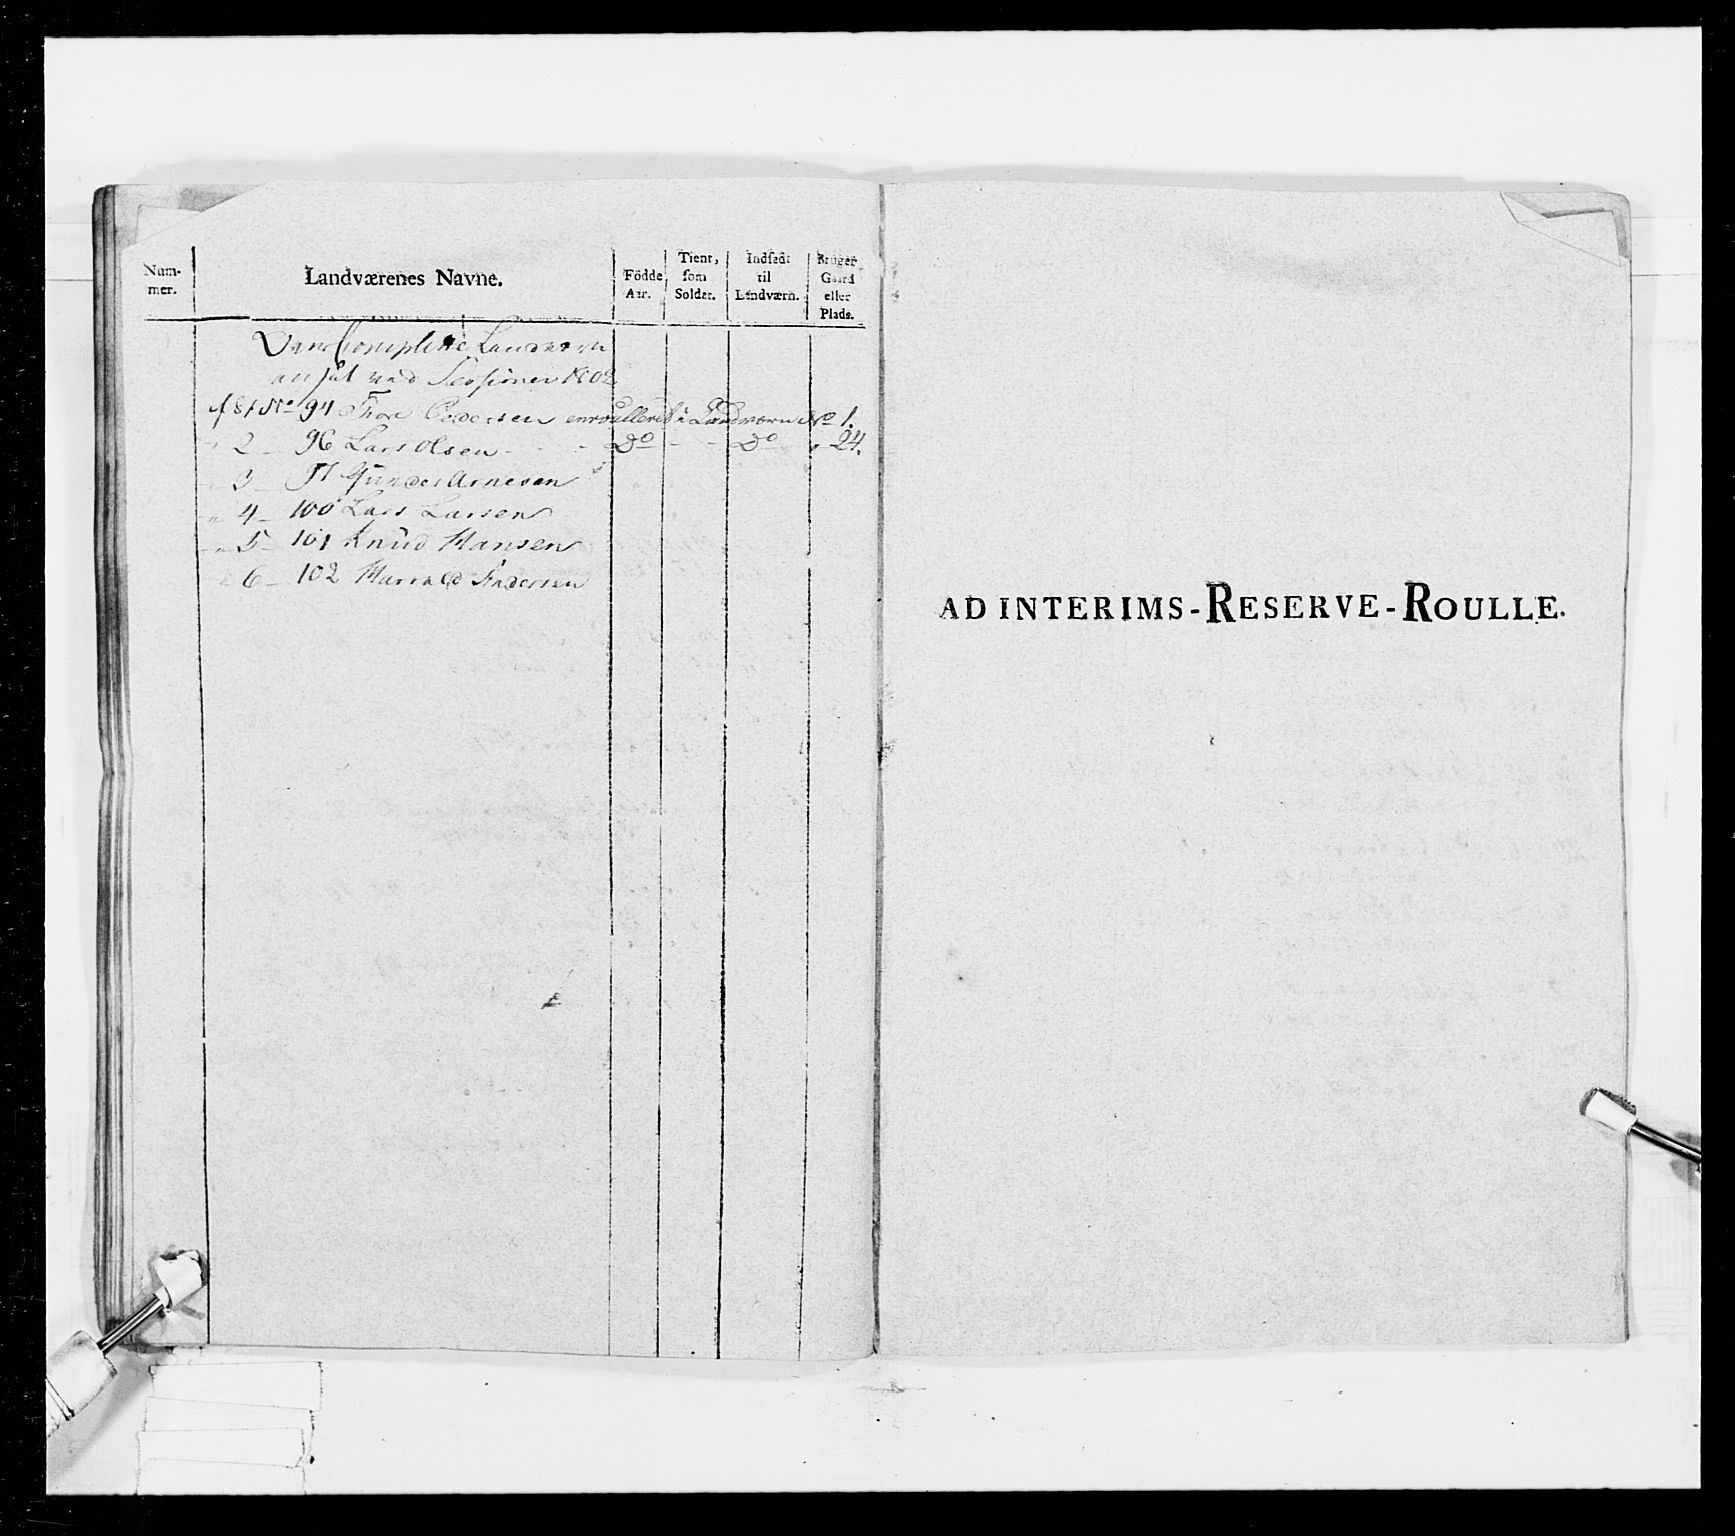 Num-
mer.
Landværenes Navne.
Födde
Aar.
Tient,
som
Soldat.
Indsedt
til
Landværn.
Bruger
Gaard
eller
Plads.
Complette Landværn
ved Sessionen 1802
No 94 Thore Pedersen enroulleret i Landværn No 1.
2 96 Lars Olsen Do Do 24.
3 Gunder Arnesen
4 100 Lars Larsen
5 101 Knud Hansen
6 102 Harrald Andersen
AD INTERIMS-RESERVE-ROULLE.